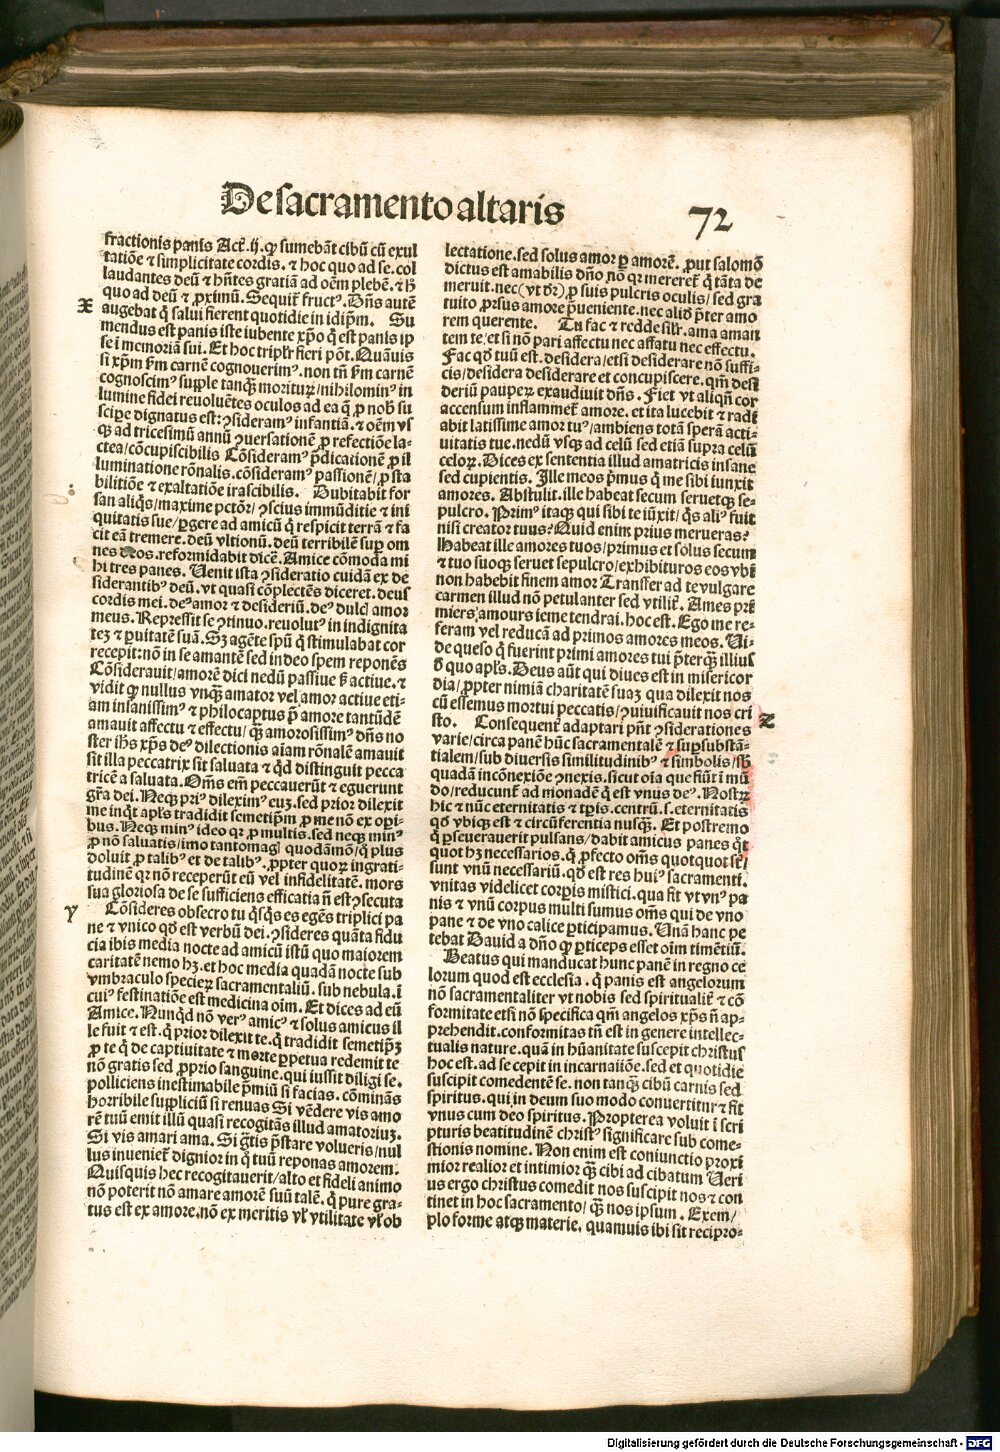 De sacramento altaris
72
fractionis panis Act̄. ij. ꝙ sumebāt cibū cū exul
tatiōe ⁊ simplicitate cordis. ⁊ hoc quo ad se. col
laudantes deū ⁊ hn̄tes gratiā ad oēm plebē. ⁊ h̄
quo ad deū ⁊ ꝓximū. Sequit̄ fructꝰ. Dn̄s autē
x
augebat q̇ salui fierent quotidie in idip̄m. Su
mendus est panis iste iubente xp̄o q̇ est panis ip
se ī memoriā sui. Et hoc triplr̄ fieri pōt. Quāuis
si xp̄m ẜm carnē cognouerimꝰ. non tn̄ ẜm carnē
cognoscimꝰ supple tanqȝ moriturȝ / nihilominꝰ in
lumine fidei reuoluētes oculos ad ea q̄ ꝓ nob̄ su
scipe dignatus est: ꝯsideramꝰ infantiā. ⁊ oēm vs
qȝ ad tricesimū annū ꝯuersationē ꝓ refectiōe la-
ctea / cōcupiscibilis Cōsideramꝰ p̄dicationē ꝓ il
luminatione rōnalis. cōsideramꝰ passionē / ꝓ sta
bilitiōe ⁊ exaltatiōe irascibilis. Dubitabit for
san aliq̇s / maxime pctōr / ꝯscius immūditie ⁊ ini
quitatis sue / ꝑgere ad amicū q̇ respicit terrā ⁊ fa
cit eā tremere. deū vltionū. deū terribilē suꝑ om
nes deos. reformidabit dicē. Amice cōmoda mi
hi tres panes. Uenit ista ꝯsideratio cuidā ex de
siderantibꝰ deū. vt quasi cōplectēs diceret. deus
cordis mei. deꝰ amor ⁊ desideriū. deꝰ dulcī amor
meus. Repressit se ꝯtinuo. reuolutꝰ in indignita
tez ⁊ ꝑuitatē suā. Sȝ agēte spū q̇ stimulabat cor
recepit: nō in se amantē sed in deo spem reponēs
Cōsiderauit / amorē dici nedū passiue s̄ actiue. ⁊
vidit ꝙ nullus vnqȝ amator vel amor actiue eti-
am insanissimꝰ ⁊ philocaptus p̄ amore tantūdē
amauit affectu ⁊ effectu / qȝ amorosissimꝰ dn̄s no
ster ih̄s xp̄s deꝰ dilectionis aīam rōnalē amauit
sit illa peccatrix sit saluata ⁊ qd̄ distinguit pecca
tricē a saluata. Oms̄ em̄ peccauerūt ⁊ eguerunt
gr̄a dei. Neqȝ priꝰ dileximꝰ euȝ. sed prior dilexit
me inqt̄ apl̄s tradidit semetip̄m ꝓ me nō ex opi-
bus. Neqȝ minꝰ ideo qꝛ ꝓ multis. sed neqȝ minꝰ
ꝓ nō saluatis / imo tantomagꝭ quodāmō / q̇ plus
doluit ꝓ talibꝰ et de talibꝰ. ꝓpter quoꝝ ingrati-
tudinē qꝛ nō receperūt eū vel infidelitatē. mors
sua gloriosa de se sufficiens efficatia n̄ est ꝯsecuta
y
Cōsideres obsecro tu q̇sq̇s es egēs triplici pa
ne ⁊ vnico qd̄ est verbū dei. ꝯsideres quāta fidu
cia ibis media nocte ad amicū istū quo maiorem
caritatē nemo hȝ. et hoc media quadā nocte sub
vmbraculo specieꝝ sacramentaliū. sub nebula. ī
cuiꝰ festinatiōe est medicina oīm. Et dices ad eū
Amice. Nunqd̄ nō verꝰ amicꝰ ⁊ solus amicus il
le fuit ⁊ est. q̇ prior dilexit te. q̇ tradidit semetip̄ȝ
ꝓ te q̇ de captiuitate ⁊ morte ꝑpetua redemit te
nō gratis sed ꝓprio sanguine. qui iussit diligi se.
polliciens inestimabile p̄miū si facias. cōminās
horribile suppliciū si renuas Si vēdere vis amo
rē tuū emit illū quasi recogitās illud amatoriuȝ.
Si vis amari ama. Si gr̄tis p̄stare volueris / nul
lus inueniet̄ dignior in q̇ tuū reponas amorem.
Quisquis hec recogitauerit / alto et fideli animo
nō poterit nō amare amorē suū talē. q̇ pure gra-
tus est ex amore. nō ex meritis vl̄ vtilitate vl̄ ob
lectatione. sed solus amor ꝑ amorē. ꝓut salomō
dictus est amabilis dn̄o nō qꝛ mereret̄ q̇ tāta de
meruit. nec (vt dr̄) ꝓ suis pulcris oculis / sed gra
tuito ꝓrsus amore p̄ueniente. nec aliď p̄ter amo
rem querente. Tu fac ⁊ redde silr̄. ama aman
tem te / et si nō pari affectu nec affatu nec effectu.
Fac qd̄ tuū est. desidera / etsi desiderare nō suffi-
cis / desidera desiderare et concupiscere. qm̄ desi
deriū pauperȝ exaudiuit dn̄s. Fiet vt aliqn̄ cor
accensum inflammet̄ amore. et ita lucebit ⁊ radi
abit latissime amor tuꝰ / ambiens totā sperā acti-
uitatis tue. nedū vsqȝ ad celū sed etiā supra celū
celoꝝ. Dices ex sententia illud amatricis insane
sed cupientis. Ille meos p̄mus q̇ me sibi iunxit
amores. Abstulit. ille habeat secum seruetqȝ se-
pulcro. Primꝰ itaqȝ qui sibi te iūxit / q̇s aliꝰ fuit
nisi creator tuus? Quid enim prius merueras?
Habeat ille amores tuos / primus et solus secum
⁊ tuo suoqȝ seruet sepulcro / exhibituros eos vbi
non habebit finem amor Transfer ad te vulgare
carmen illud nō petulanter sed vtilit̄. Ames pri
miers amours ieme tendrai. hoc est. Ego me re-
feram vel reducā ad primos amores meos. Ui-
de queso q̇ fuerint primi amores tui p̄terqȝ illius
ď quo apl̄s. Deus aūt qui diues est in misericor
dia / ꝓpter nimiā charitatē suaȝ qua dilexit nos
cū essemus mortui peccatis / ꝯuiuificauit nos cri
z
sto. Consequent̄ adaptari pn̄t ꝯsiderationes
varie / circa panē hūc sacramentalē ⁊ suꝑsubstā-
tialem / sub diuersis similitudinibꝰ ⁊ simbolis / sb̄
quadā incōnexiōe ꝯnexis. sicut oīa que fiūt ī mū
do / reducunt̄ ad monadē q̄ est vnus deꝰ. Nostrȝ
hic ⁊ nūc eternitatis ⁊ tp̄is. centrū. s. eternitatis
qd̄ vbiqȝ est ⁊ circūferentia nusqȝ. Et postremo
q̇ ꝑseuerauerit pulsans / dabit amicus panes qt̄
quot hȝ necessarios. q̇ ꝓfecto oms̄ quotquot se /
sunt vnū necessariū. qd̄ est res huiꝰ sacramenti.
vnitas videlicet corpis mistici. qua fit vt vnꝰ pa
nis ⁊ vnū corpus multi sumus oms̄ qui de vno
pane ⁊ de vno calice ꝑticipamus. Unā hanc pe
tebat Dauid a dn̄o ꝙ ꝑticeps esset oīm timētiū.
Beatus qui manducat hunc panē in regno ce
lorum quod est ecclesia. q̇ panis est angelorum
nō sacramentaliter vt nobis sed spiritualit̄ ⁊ cō
formitate etsi nō specifica qm̄ angelos xp̄s n̄ ap-
prehendit. conformitas tn̄ est in genere intellec-
tualis nature. quā in hūanitate suscepit christus
hoc est. ad se cepit in incarnatiōe. sed et quotidie
suscipit comedentē se. non tanqȝ cibū carnis sed
spiritus. qui in deum suo modo conuertitur ⁊ fit
vnus cum deo spiritus. Propterea voluit ī scri
pturis beatitudinē christꝰ significare sub come-
stionis nomine. Non enim est coniunctio proxi
mior realior et intimior qȝ cibi ad cibatum Ueri
us ergo christus comedit nos suscipit nos ⁊ con
tinet in hoc sacramento / qȝ nos ipsum. Exem /
plo forme atqȝ materie. quamuis ibi sit recipro-
Digitalisierung gefördert durch die Deutsche Forschungsgemeinschaft - DFG